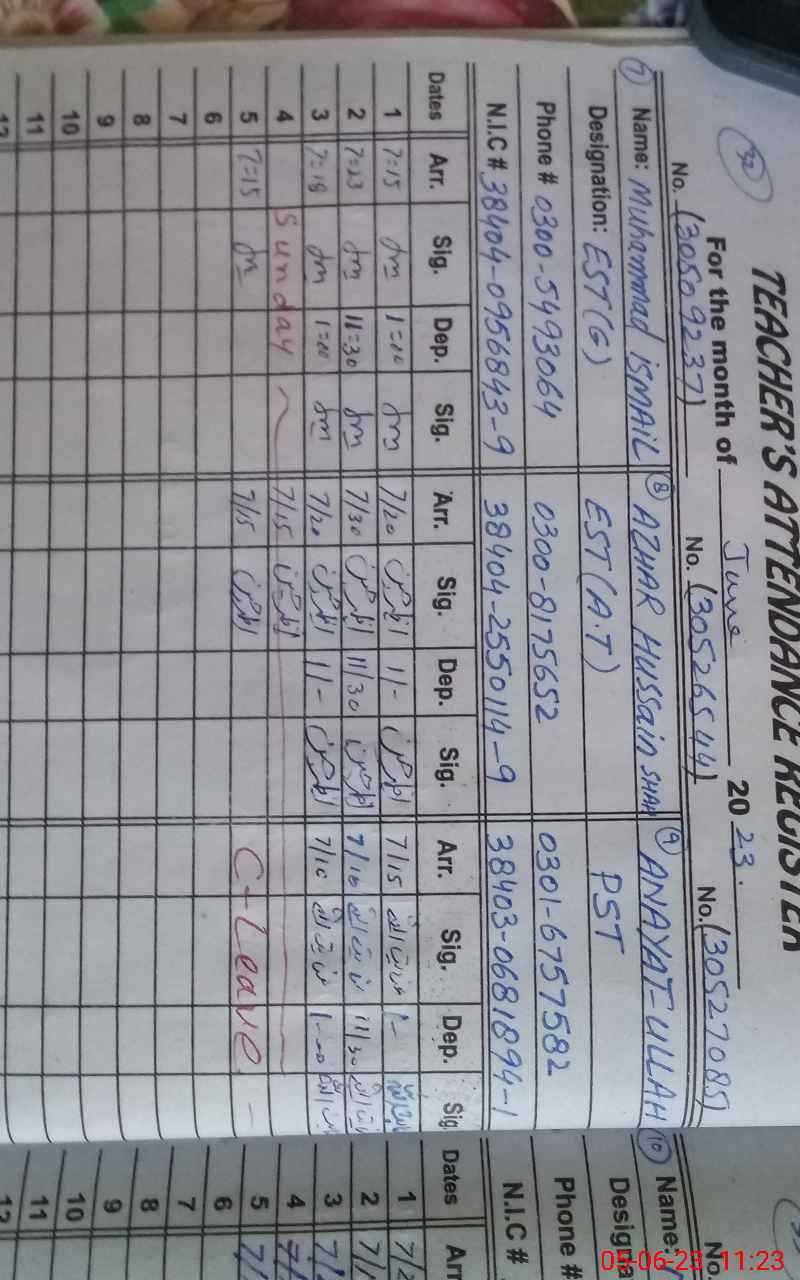 TEACHER'S ATTENDANCE REGISTER
32
For the month of June 2023.
No. (30509237) No. (30526544) No. (30527085)
7 Name: Muhammad ISMAIL 8 AZHAR HUSSAIN SHAH 9 ANAYAT-ULLAH
Designation: EST(G) EST(A.T) PST
Phone # 0300-5493064 0300-8175652 0301-6757582
N.I.C # 38404-0956843-9 38404-2550114-9 38403-0681894-1
Dates Arr. Sig. Dep. Sig. Arr. Sig. Dep. Sig. Arr. Sig. Dep. Sig.
1 7=15 1=00 7/20 1/- 7/15 1-
2 7=23 11=30 7/30 11/30 7/10 11/30
3 7=18 1=00 7/20 1/- 7/10
4 Sunday 7/15
5 7=15 7/15 C-Leave
6
7
8
9
10
11
12
No.
10 Name:
Designa
Phone #
N.I.C #
Dates Arr
1 7/2
2 7/
3 7/
4 7/
5 7/
6
7
8
9
10
11
12
05-06-23 11:23